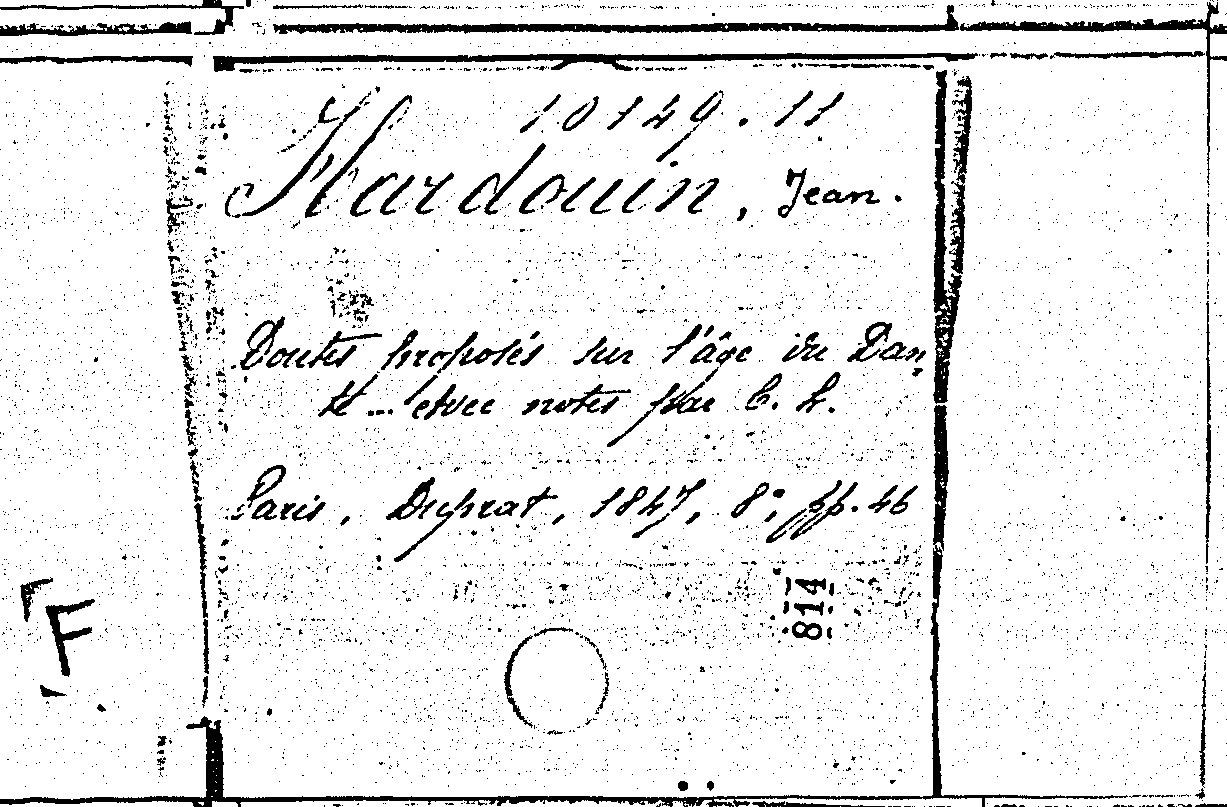 10149.11
Hardouin, Jean.
Doutes proposés sur l'âge du Dan
te ... avec notes par C. L.
Paris, Duprat, 1847, 8°, pp. 46
814
F